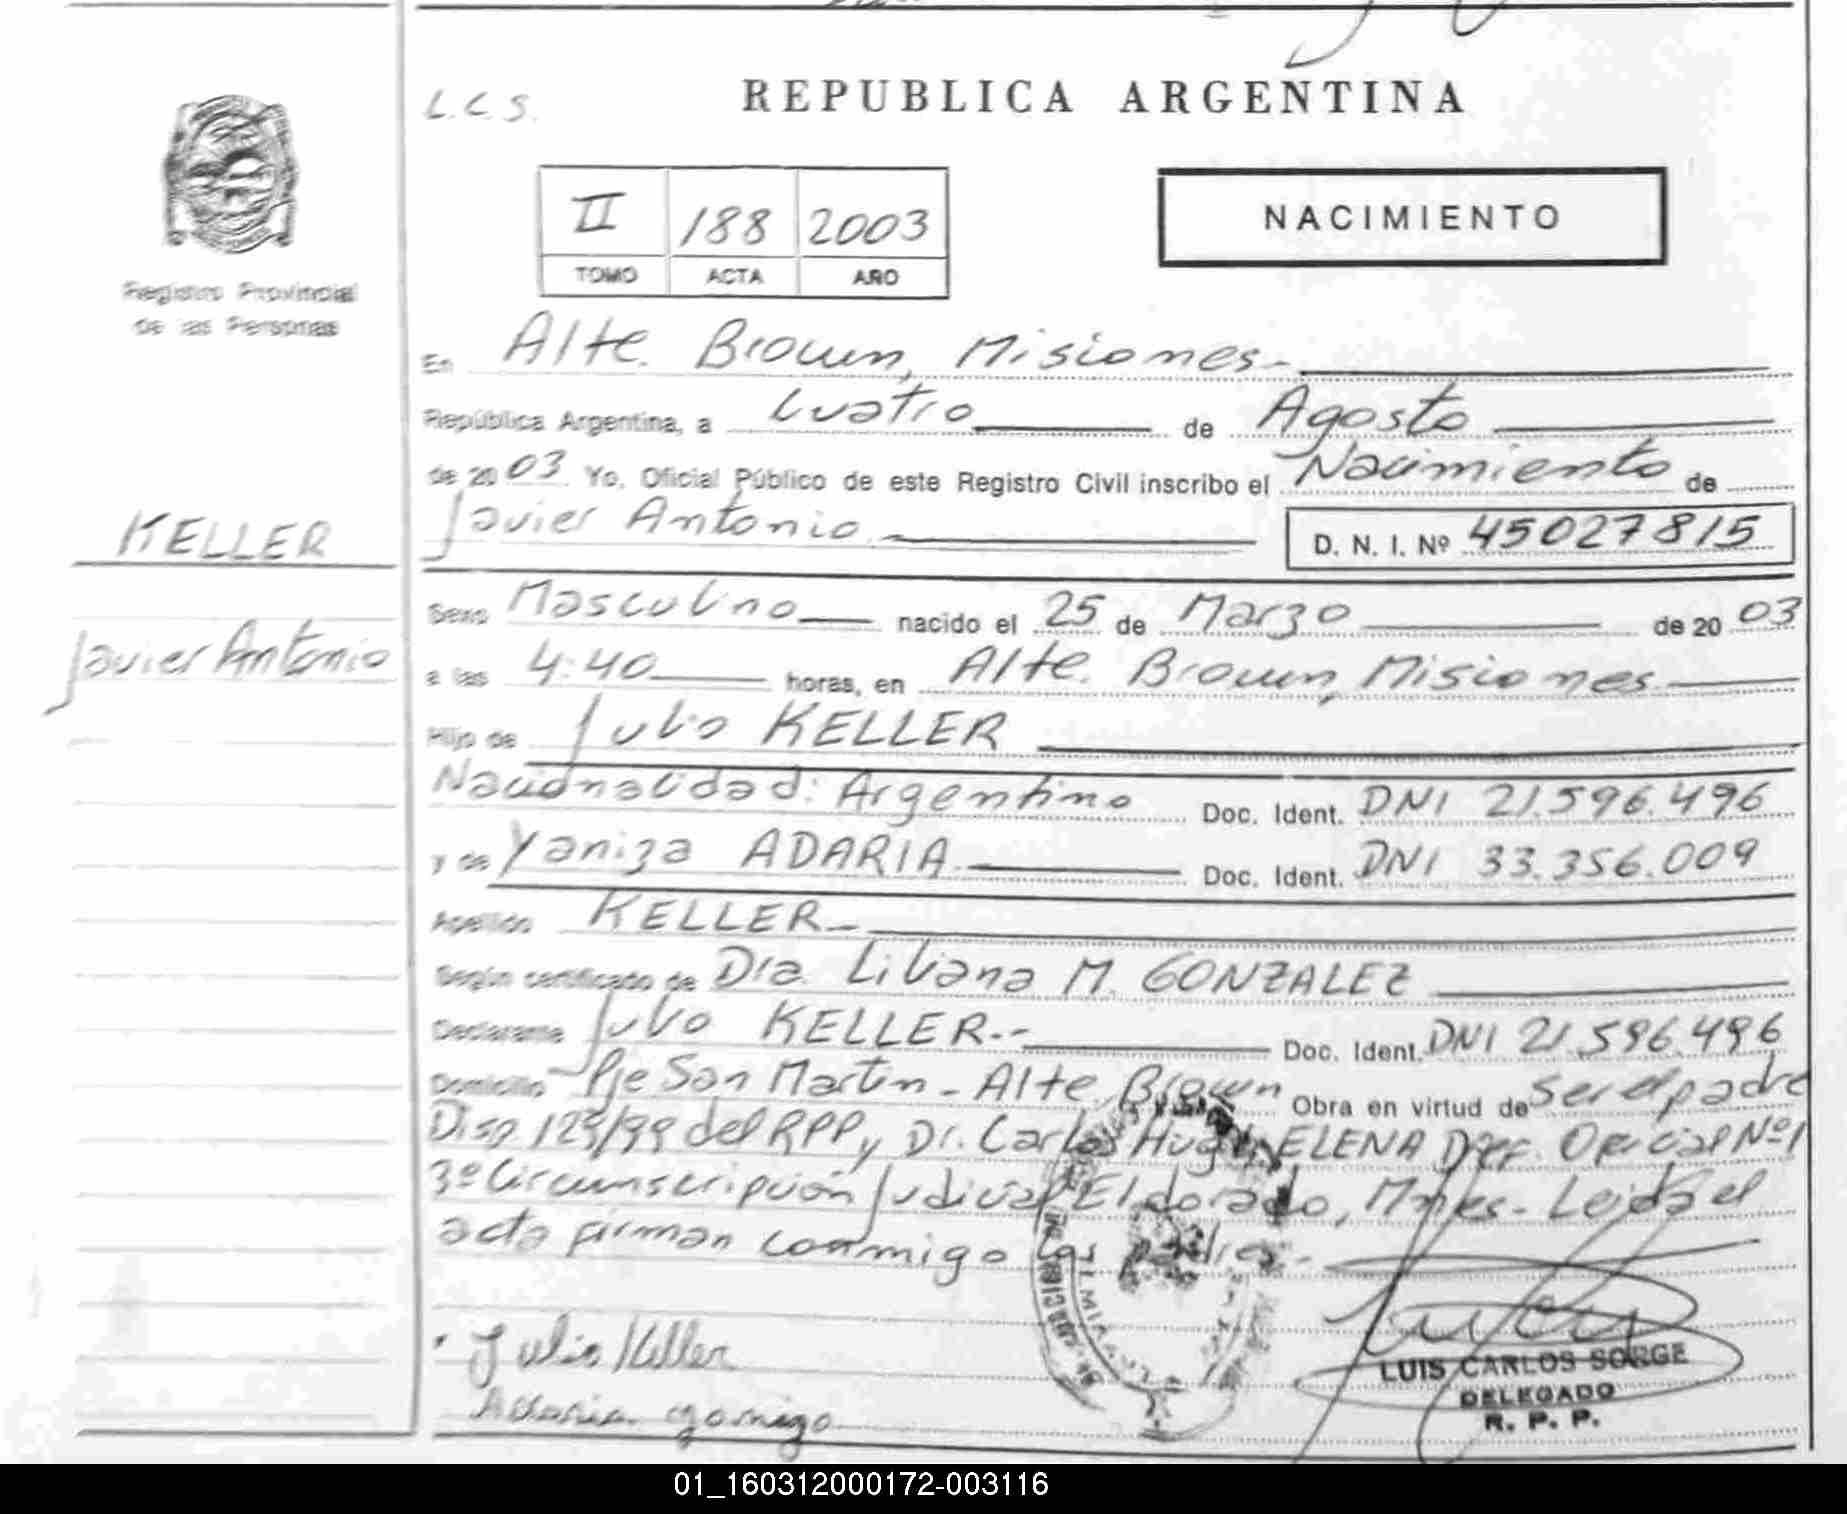 L.C.S.
REPUBLICA ARGENTINA
II 188 2003
TOMO ACTA AÑO
NACIMIENTO
Registro Provincial
de las Personas
En Alte. Brown, Misiones-
República Argentina, a Cuatro de Agosto
de 2003 Yo, Oficial Público de este Registro Civil inscribo el Nacimiento de
Javier Antonio D. N. I. Nº 45027815
KELLER
Javier Antonio
Sexo Masculino nacido el 25 de Marzo de 2003
a las 4:40 horas, en Alte. Brown, Misiones
Hijo de Julio KELLER
Nacionalidad: Argentino Doc. Ident. DNI 21.596.496
y de Yaniza ADARIA Doc. Ident. DNI 33.356.009
Apellido KELLER-
Según certificado de Dra. Liliana M. GONZALEZ
Declarante Julio KELLER.-- Doc. Ident. DNI 21.596.496
Domicilio Pje San Martin - Alte. Brown Obra en virtud de Ser el padre
Disp. /99 del RPP, y Dr. Carlos Hugo ELENA Def. Oficial Nº1
3º Circunscripción Judicial Eldorado, Mnes.- Leida el
acta firman conmigo los padres.-
Julio Keller
LUIS CARLOS SORGE
DELEGADO
R. P. P.
01_160312000172-003116